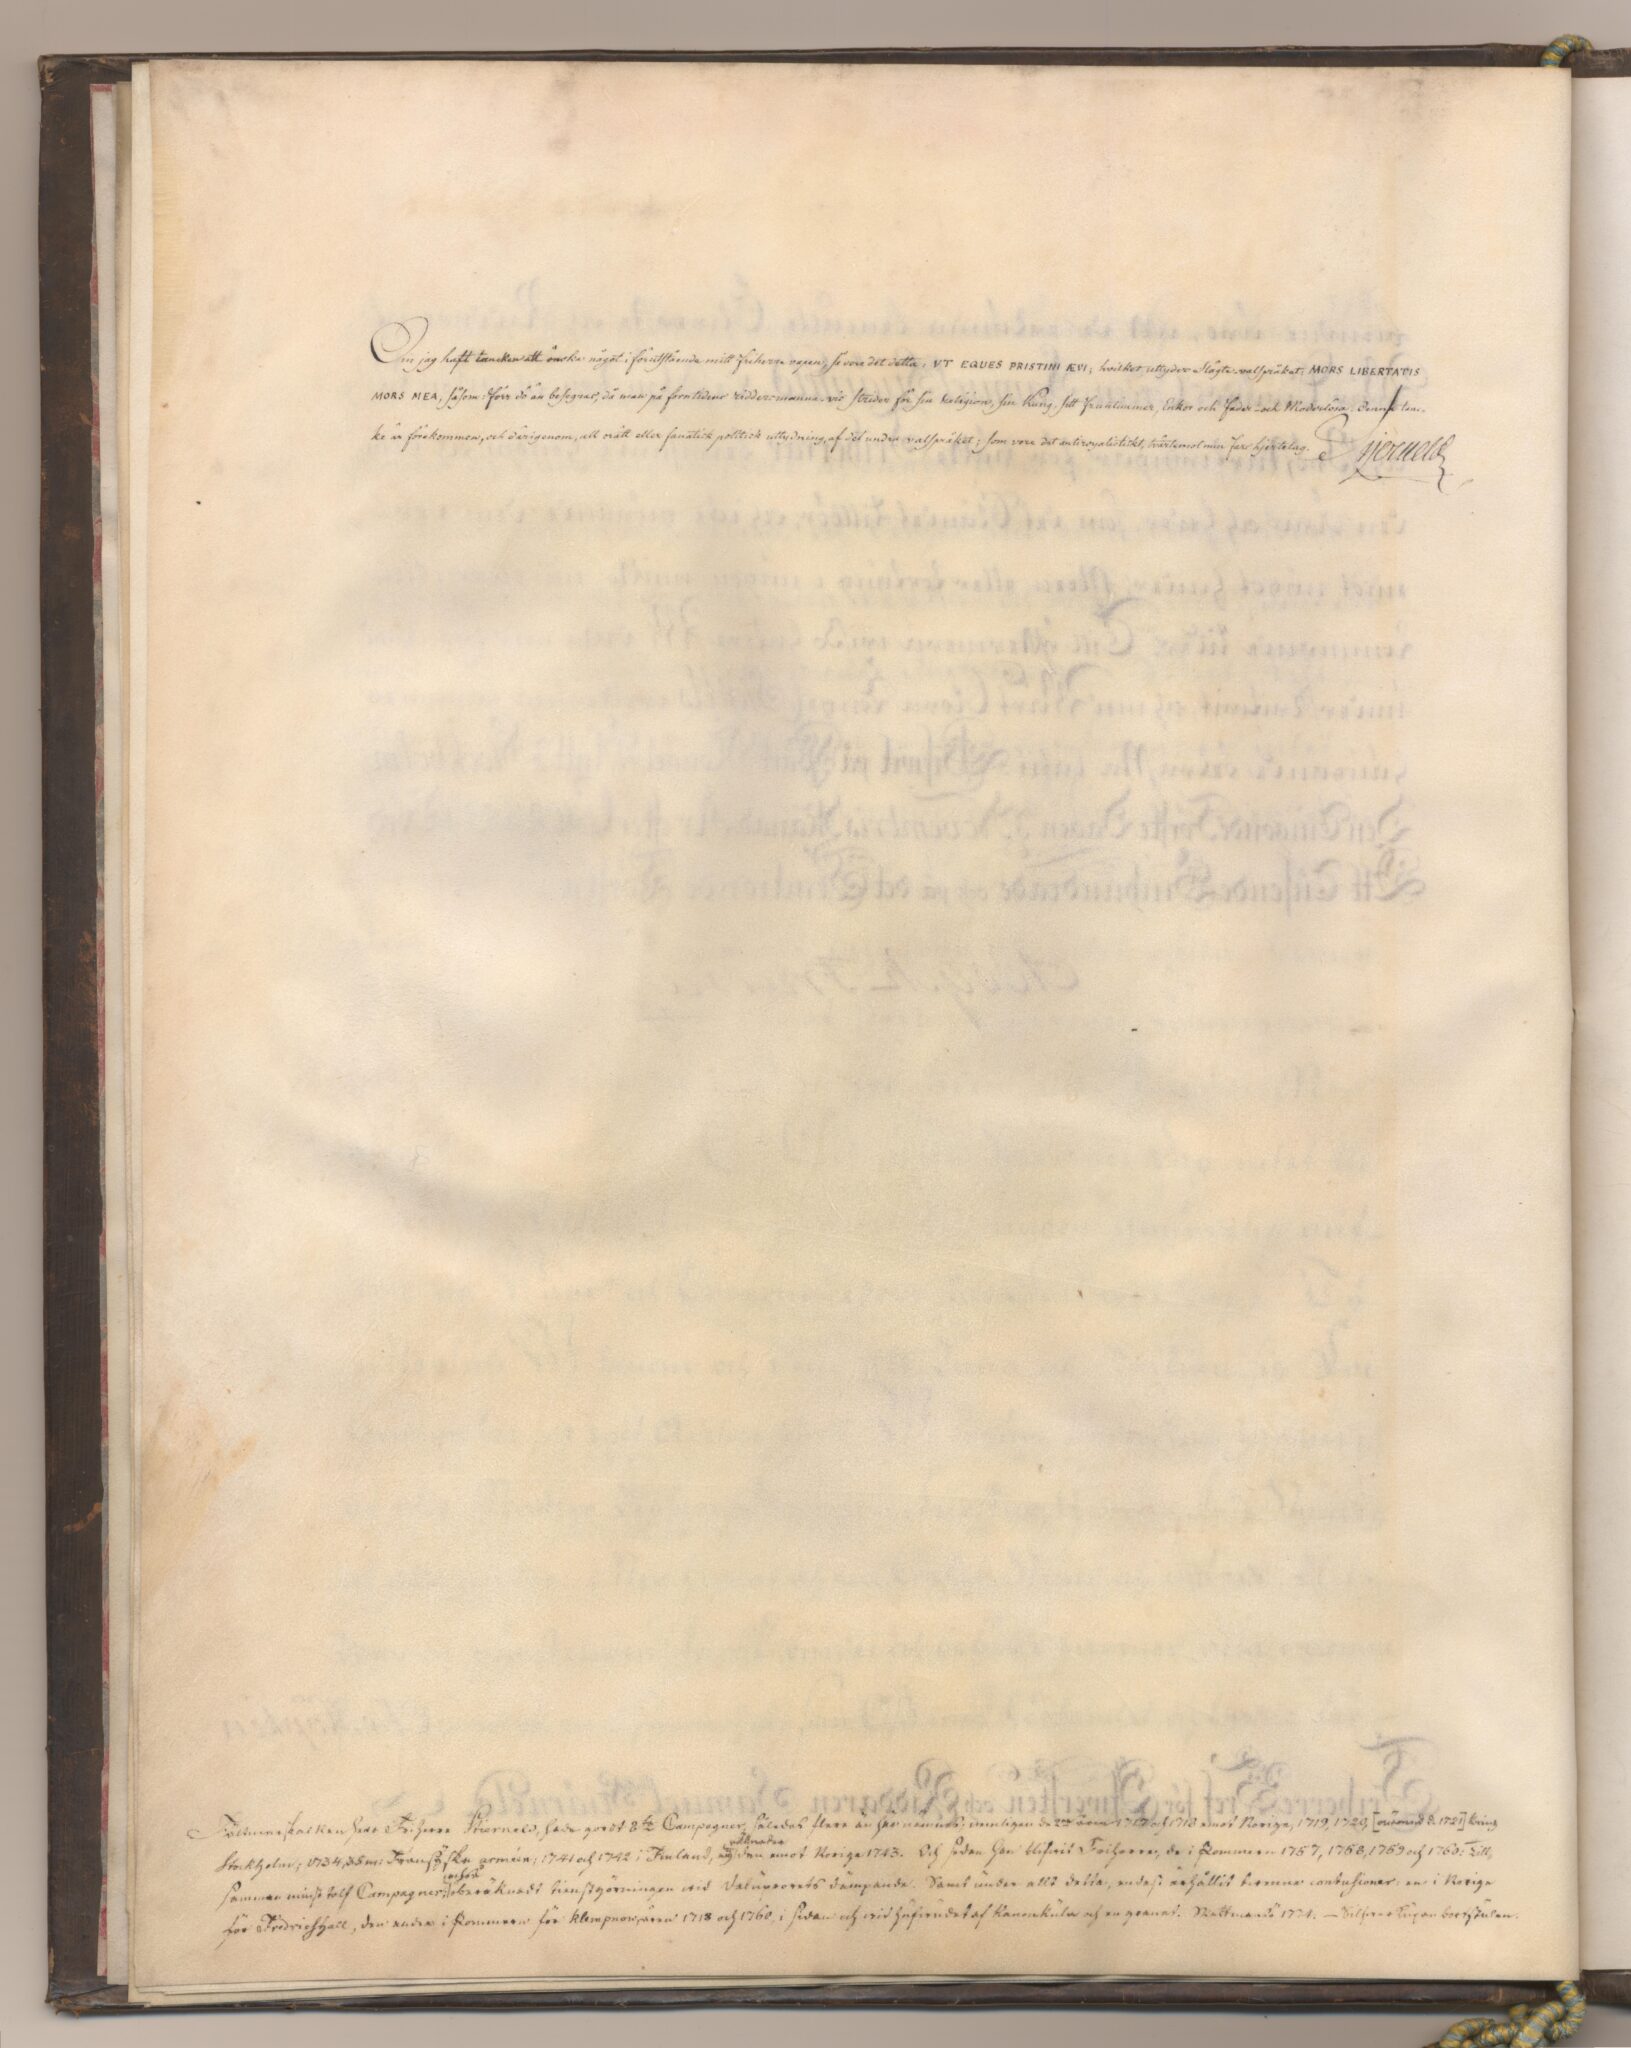 Om jag haft tancken att önska något i förutstående mitt Friherre vapen, så vore det detta, VT EQUES PRISTINI ÆVI; hvilket uttyder Slägte-valspråket, MORS LIBERTATIS
MORS MEA, såsom: förr dö än besegras, då man på forntidens riddersmanna-vis strider för sin Religion, sin Kung, sitt Fruntimmer, Enkor och Fader- och Moderlösa. Denna tan-
ke är förekommen, och därigenom, all orätt eller fanatisk politisk uttydning, af det andra valspråket; som vore det antiroyalistiskt, tvärtemot min Fars hjertelag. Stjerneld
Fältmarskalken Herr Friherre Stiärneld, hade gordt 8te Campagner, således flere än här nämnas: nemligen de 2ne åren 1717 och 1718 emot Norige, 1719, 1720, 1721] kring
Stockholm; 1734, 35 i Fransyska arméen; 1741 och 1742 i Finland, den emot Norige 1743. Och sedan han blifvit Friherre, de i Pommern 1757, 1758, 1759 och 1760: Till-
samman minst tolf Campagner; oberäknadt tienstgörningen vid Daluprorets dämpande. Samt under allt detta, endast erhållit tvenne contusioner: en i Norige
för Fredrichshall, den andra i Pommern för Klempnow, åren 1718 och 1760, i sidan och vid hufvudet af Kanonkula och en granat.